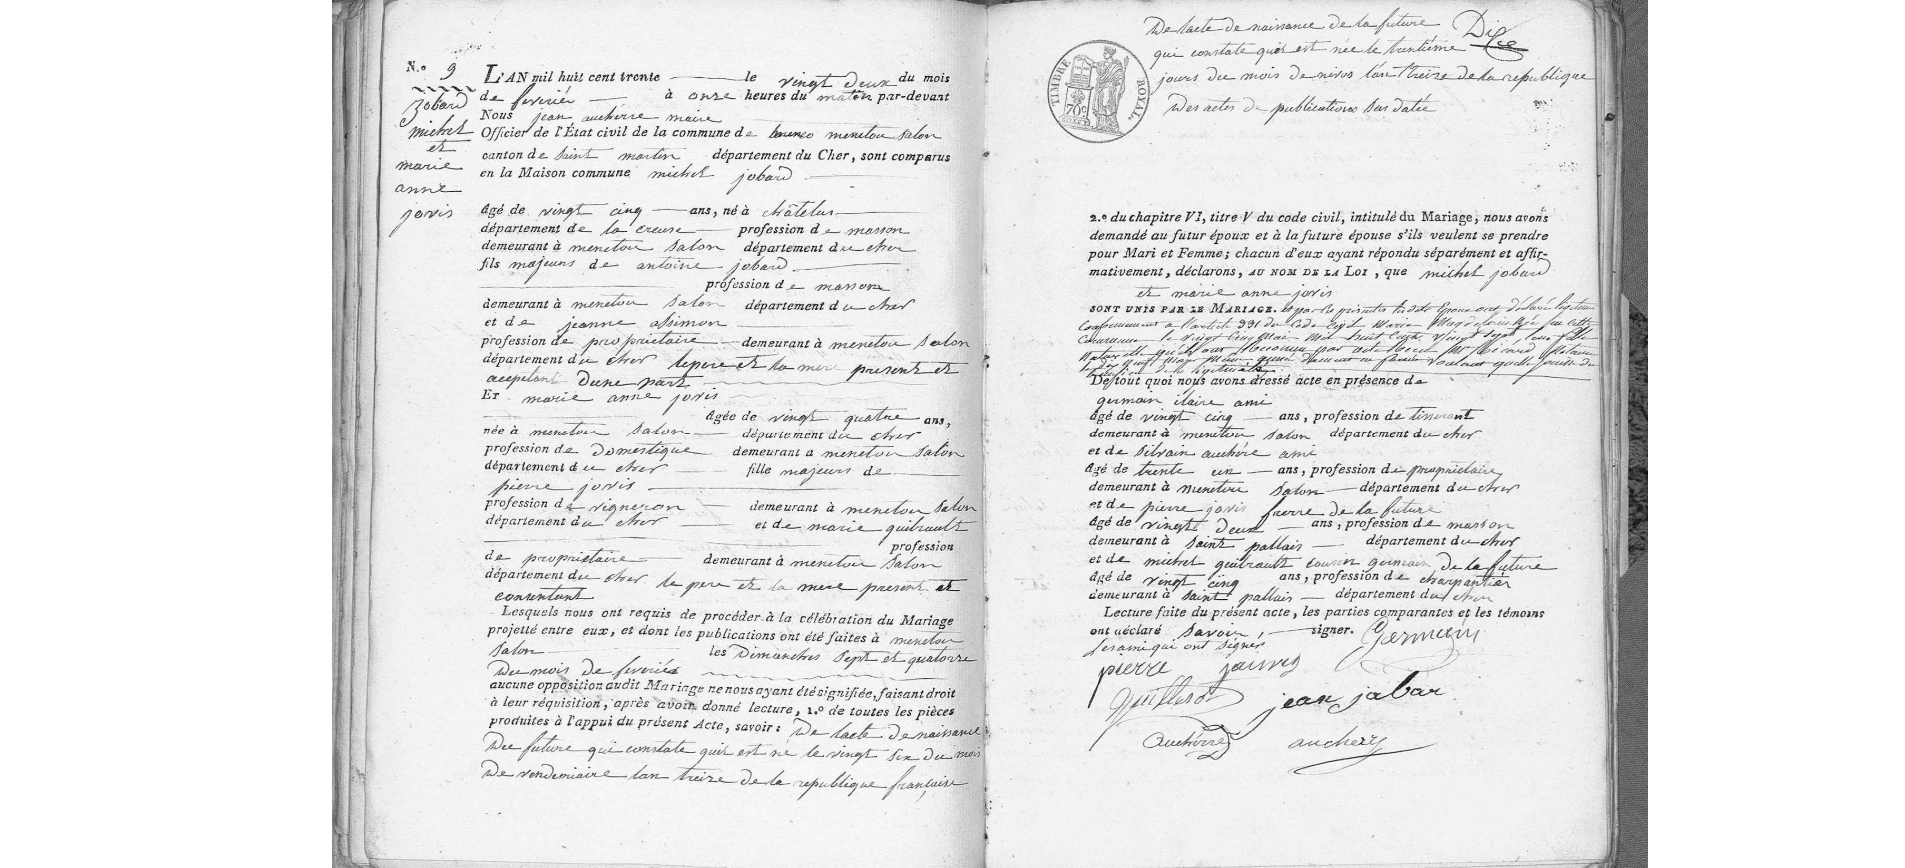 N.o 9
Jobard
michel
et
marie
anne
joris
L'AN mil huit cent trente le vingt deux du mois
de feverier à onze heures du matin par-devant
Nous jean aucherre maire
Officier de l'État civil de la commune de menetou salon
canton de saint martin département du Cher, sont comparus
en la Maison commune michel jobard
âgé de vingt cinq ans, né à châtelus
département de la creuse profession de masson
demeurant à menetou salon département du cher
fils majeurs de antoine jobard
profession de masson
demeurant à menetou salon département du cher
et de jeanne assimon
profession de proprietaire demeurant à menetou salon
département du cher le pere et la mere present et
acceptant dune part
Et marie anne joris
âgée de vingt quatre ans,
née à menetou salon département du cher
profession de domestique demeurant a menetou salon
département du cher fille majeurs de
pierre joris
profession de vigneron demeurant à menetou salon
département du cher et de marie guibrault
profession
de proprietaire demeurant à menetou salon
département du cher le pere et la mere present et
consentant
Lesquels nous ont requis de procéder à la célébration du Mariage
projetté entre eux, et dont les publications ont été faites à menetou
salon les Dimanches sept et quatorze
du mois de feverier
aucune opposition audit Mariage ne nous ayant été signifiée, faisant droit
à leur réquisition, après avoir donné lecture, 1.o de toutes les pièces
produites à l'appui du présent Acte, savoir: De lacte de naissance
Du future qui constate quil est ne le vingt six du mois
De vendemiaire lan treize de la republique française
De lacte de naissance de la future
qui constate quel est née le trentieme
jours du mois de nivos l'an treize de la republique
Des actes de publications sus datée
TIMBRE ROYAL.
70c
2.o du chapitre VI, titre V du code civil, intitulé du Mariage, nous avons
demandé au futur époux et à la future épouse s'ils veulent se prendre
pour Mari et Femme; chacun d'eux ayant répondu séparément et affir-
mativement, déclarons, AU NOM DE LA LOI, que michel jobard
et marie anne joris
SONT UNIS PAR LE MARIAGE. et par les présentes les dits Epoux ont déclaré légitimer
Conformement a l'article 331 du Code Civil Marie
Commune le vingt Cinq Mai Mil huit Cent Vingt Sept
De tout quoi nous avons dressé acte en présence de
germain itaire ami
âgé de vingt cinq ans, profession de tisserant
demeurant à menetou salon département du cher
et de silvain auchére ami
âgé de trente un ans, profession de propriétaire
demeurant à menetou salon département du cher
et de pierre joris frerre de la future
âgé de vingte deux ans, profession de masson
demeurant à saint pallais département du cher
et de michel guibrault cousin germain de la future
âgé de vingt cinq ans, profession de charpantier
demeurant à saint pallais département du cher
Lecture faite du présent acte, les parties comparantes et les témoins
ont déclaré savoir, signer. Germain
pierre
jean jabar